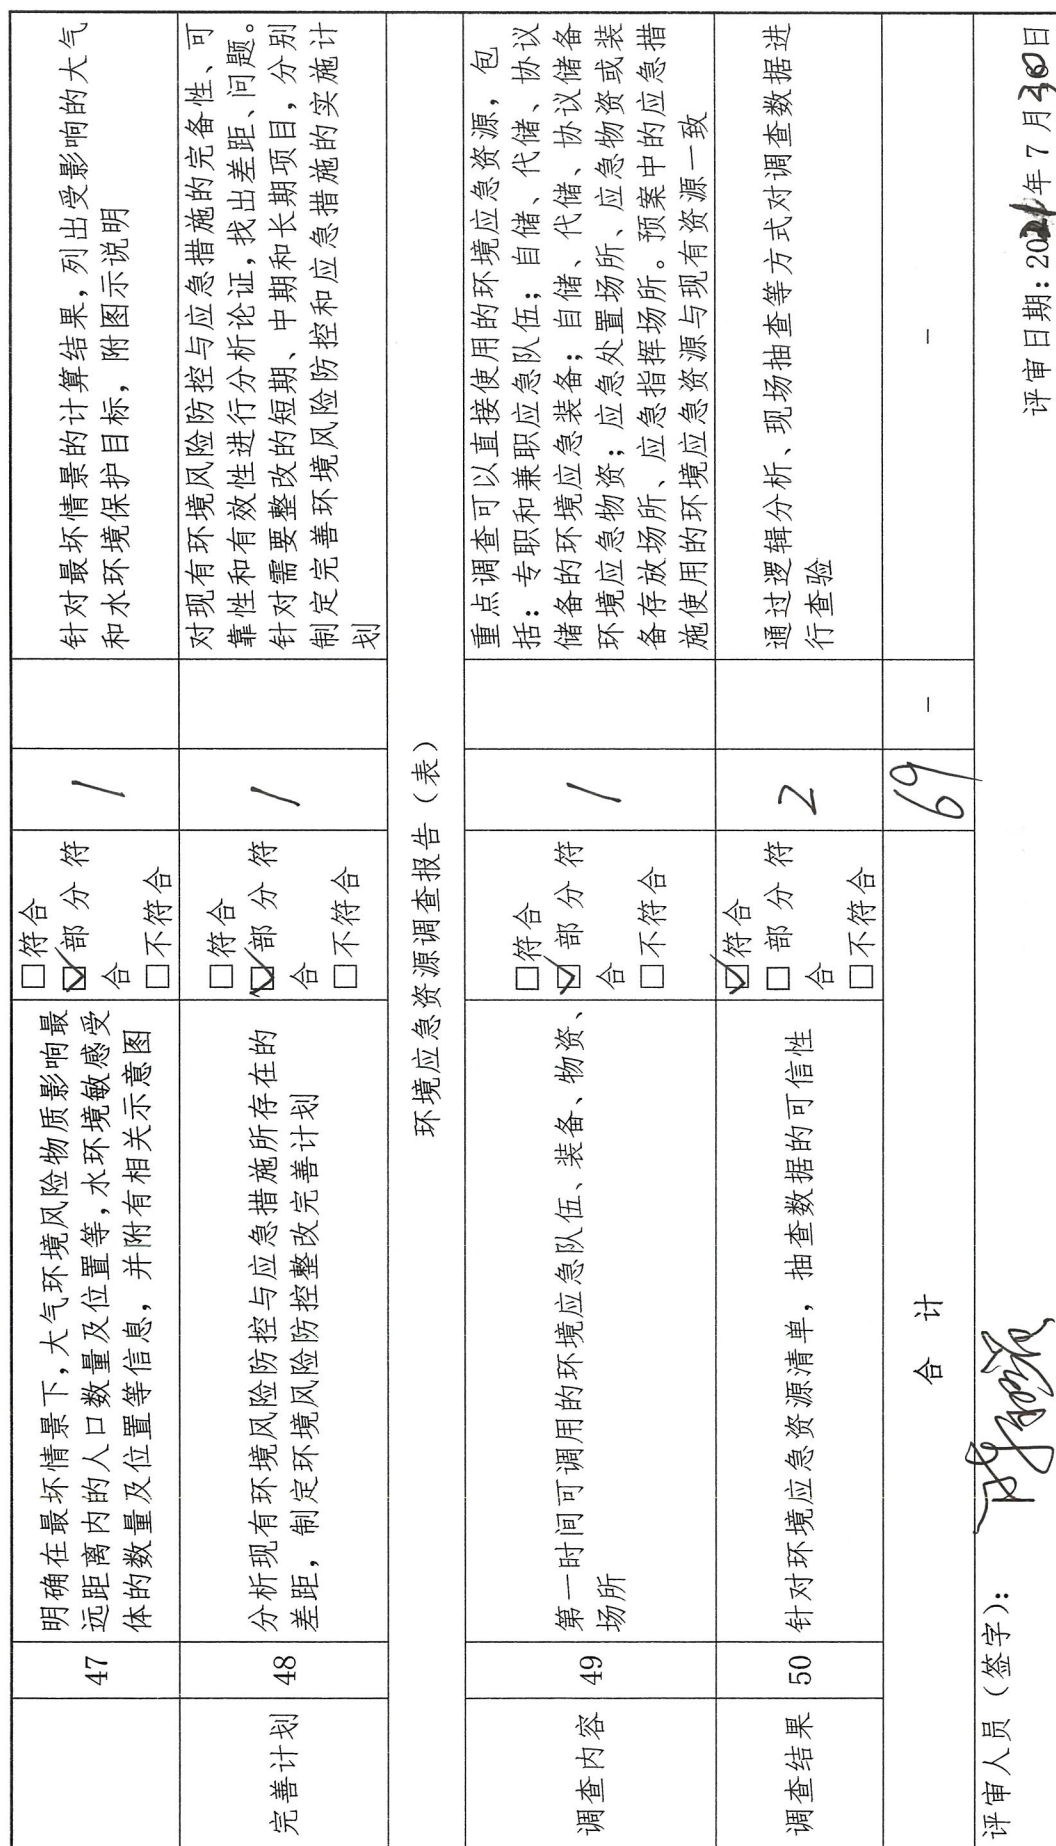 47
明确在最坏情景下,大气环境风险物质影响最
远距离内的人口数量及位置等,水环境敏感受
体的数量及位置等信息，并附有相关示意图
□符合
☑部分符
合
□不符合
1
针对最坏情景的计算结果，列出受影响的大气
和水环境保护目标，附图示说明
完善计划
48
分析现有环境风险防控与应急措施所存在的
差距，制定环境风险防控整改完善计划
□符合
☑部分符
合
□不符合
1
对现有环境风险防控与应急措施的完备性、可
靠性和有效性进行分析论证,找出差距、问题。
针对需要整改的短期、中期和长期项目，分别
制定完善环境风险防控和应急措施的实施计
划
环境应急资源调查报告（表）
调查内容
49
第一时间可调用的环境应急队伍、装备、物资、
场所
□符合
☑部分符
合
□不符合
1
重点调查可以直接使用的环境应急资源，包
括：专职和兼职应急队伍；自储、代储、协议
储备的环境应急装备；自储、代储、协议储备
环境应急物资；应急处置场所、应急物资或装
备存放场所、应急指挥场所。预案中的应急措
施使用的环境应急资源与现有资源一致
调查结果
50
针对环境应急资源清单，抽查数据的可信性
☑符合
□部分符
合
□不符合
2
通过逻辑分析、现场抽查等方式对调查数据进
行查验
合 计
69
－
－
评审人员（签字）：
评审日期：2021年7月30日